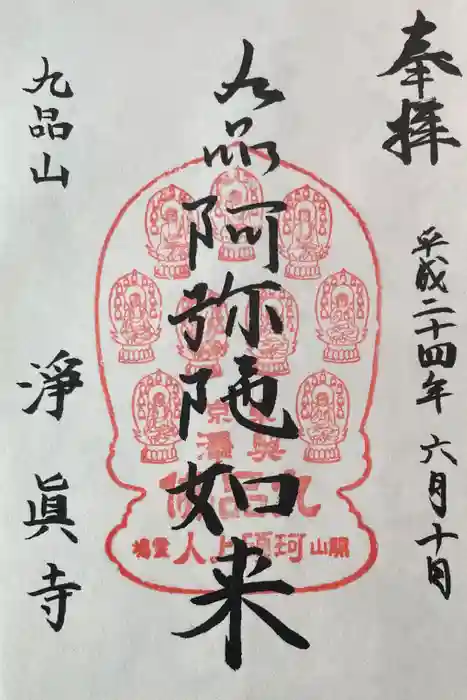 奉拝
平成二十四年 六月十日
九品阿弥陀如来
九品山
淨眞寺
東京
奥澤
九品仏
開山珂碩上人霊場